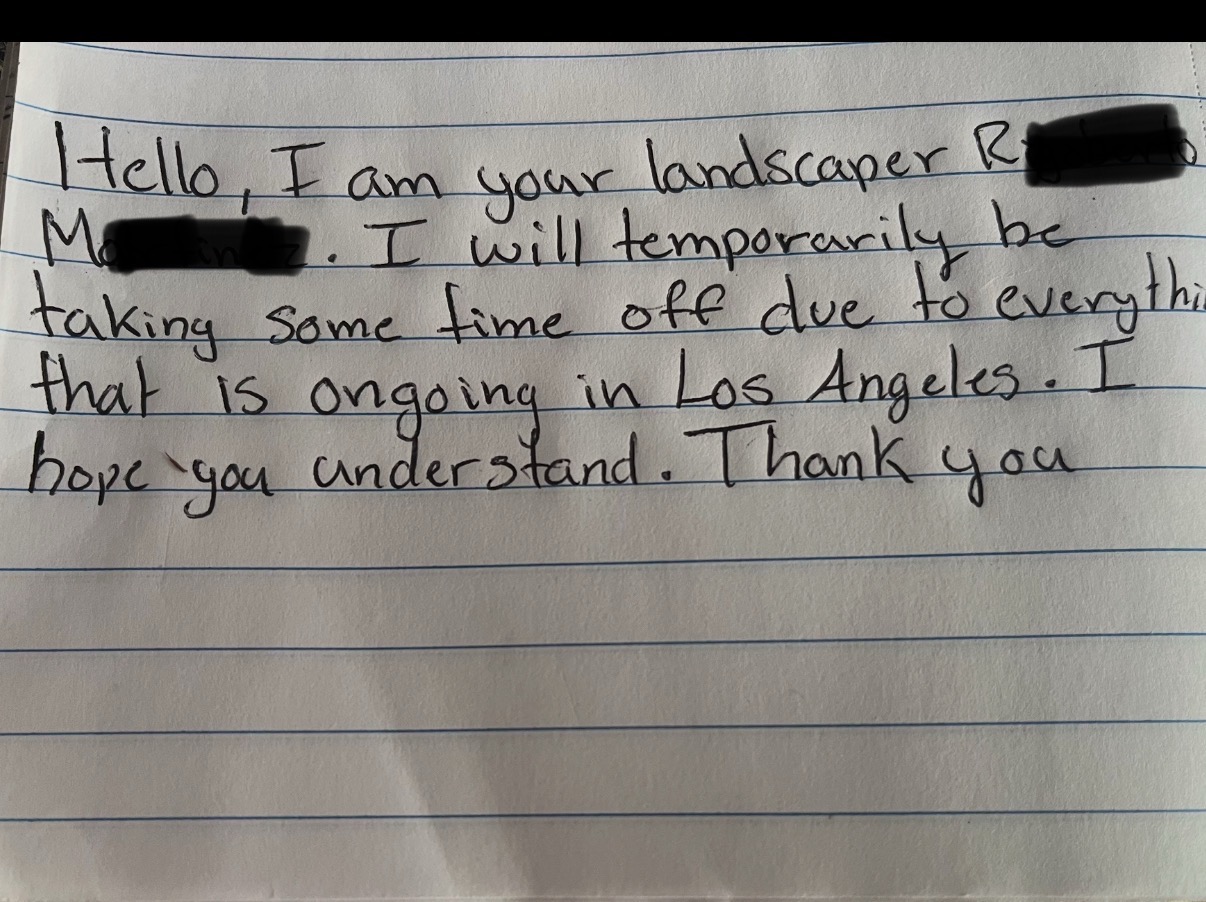 Hello, I am your landscaper R
M . I will temporarily be
taking some time off due to everythi
that is ongoing in Los Angeles. I
hope you understand. Thank you